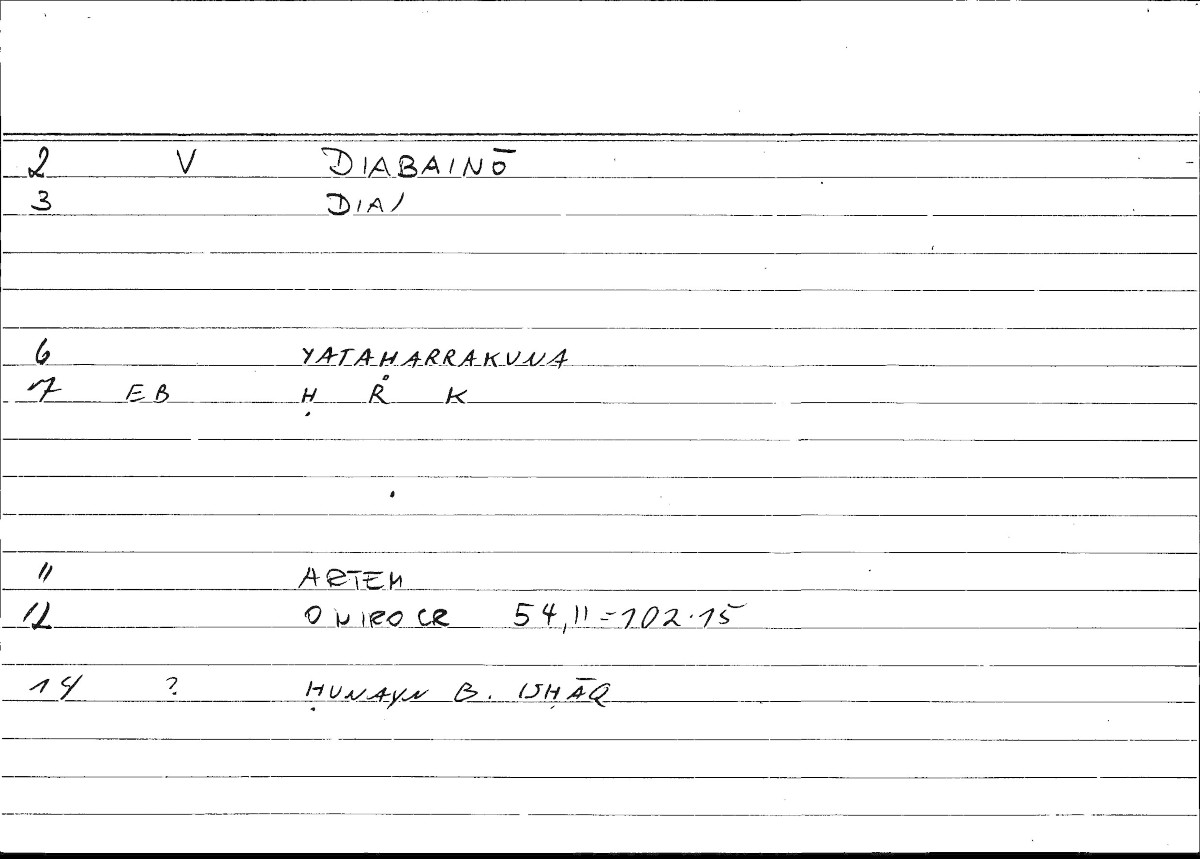 2 V DIABAINŌ
3 DIA/
6 YATAHARRAKUNA
7 EB Ḥ R̊ K
11 ARTEM
12 ONIROCR 54,11=102.15
14 ? ḤUNAYN B. ISḤĀQ